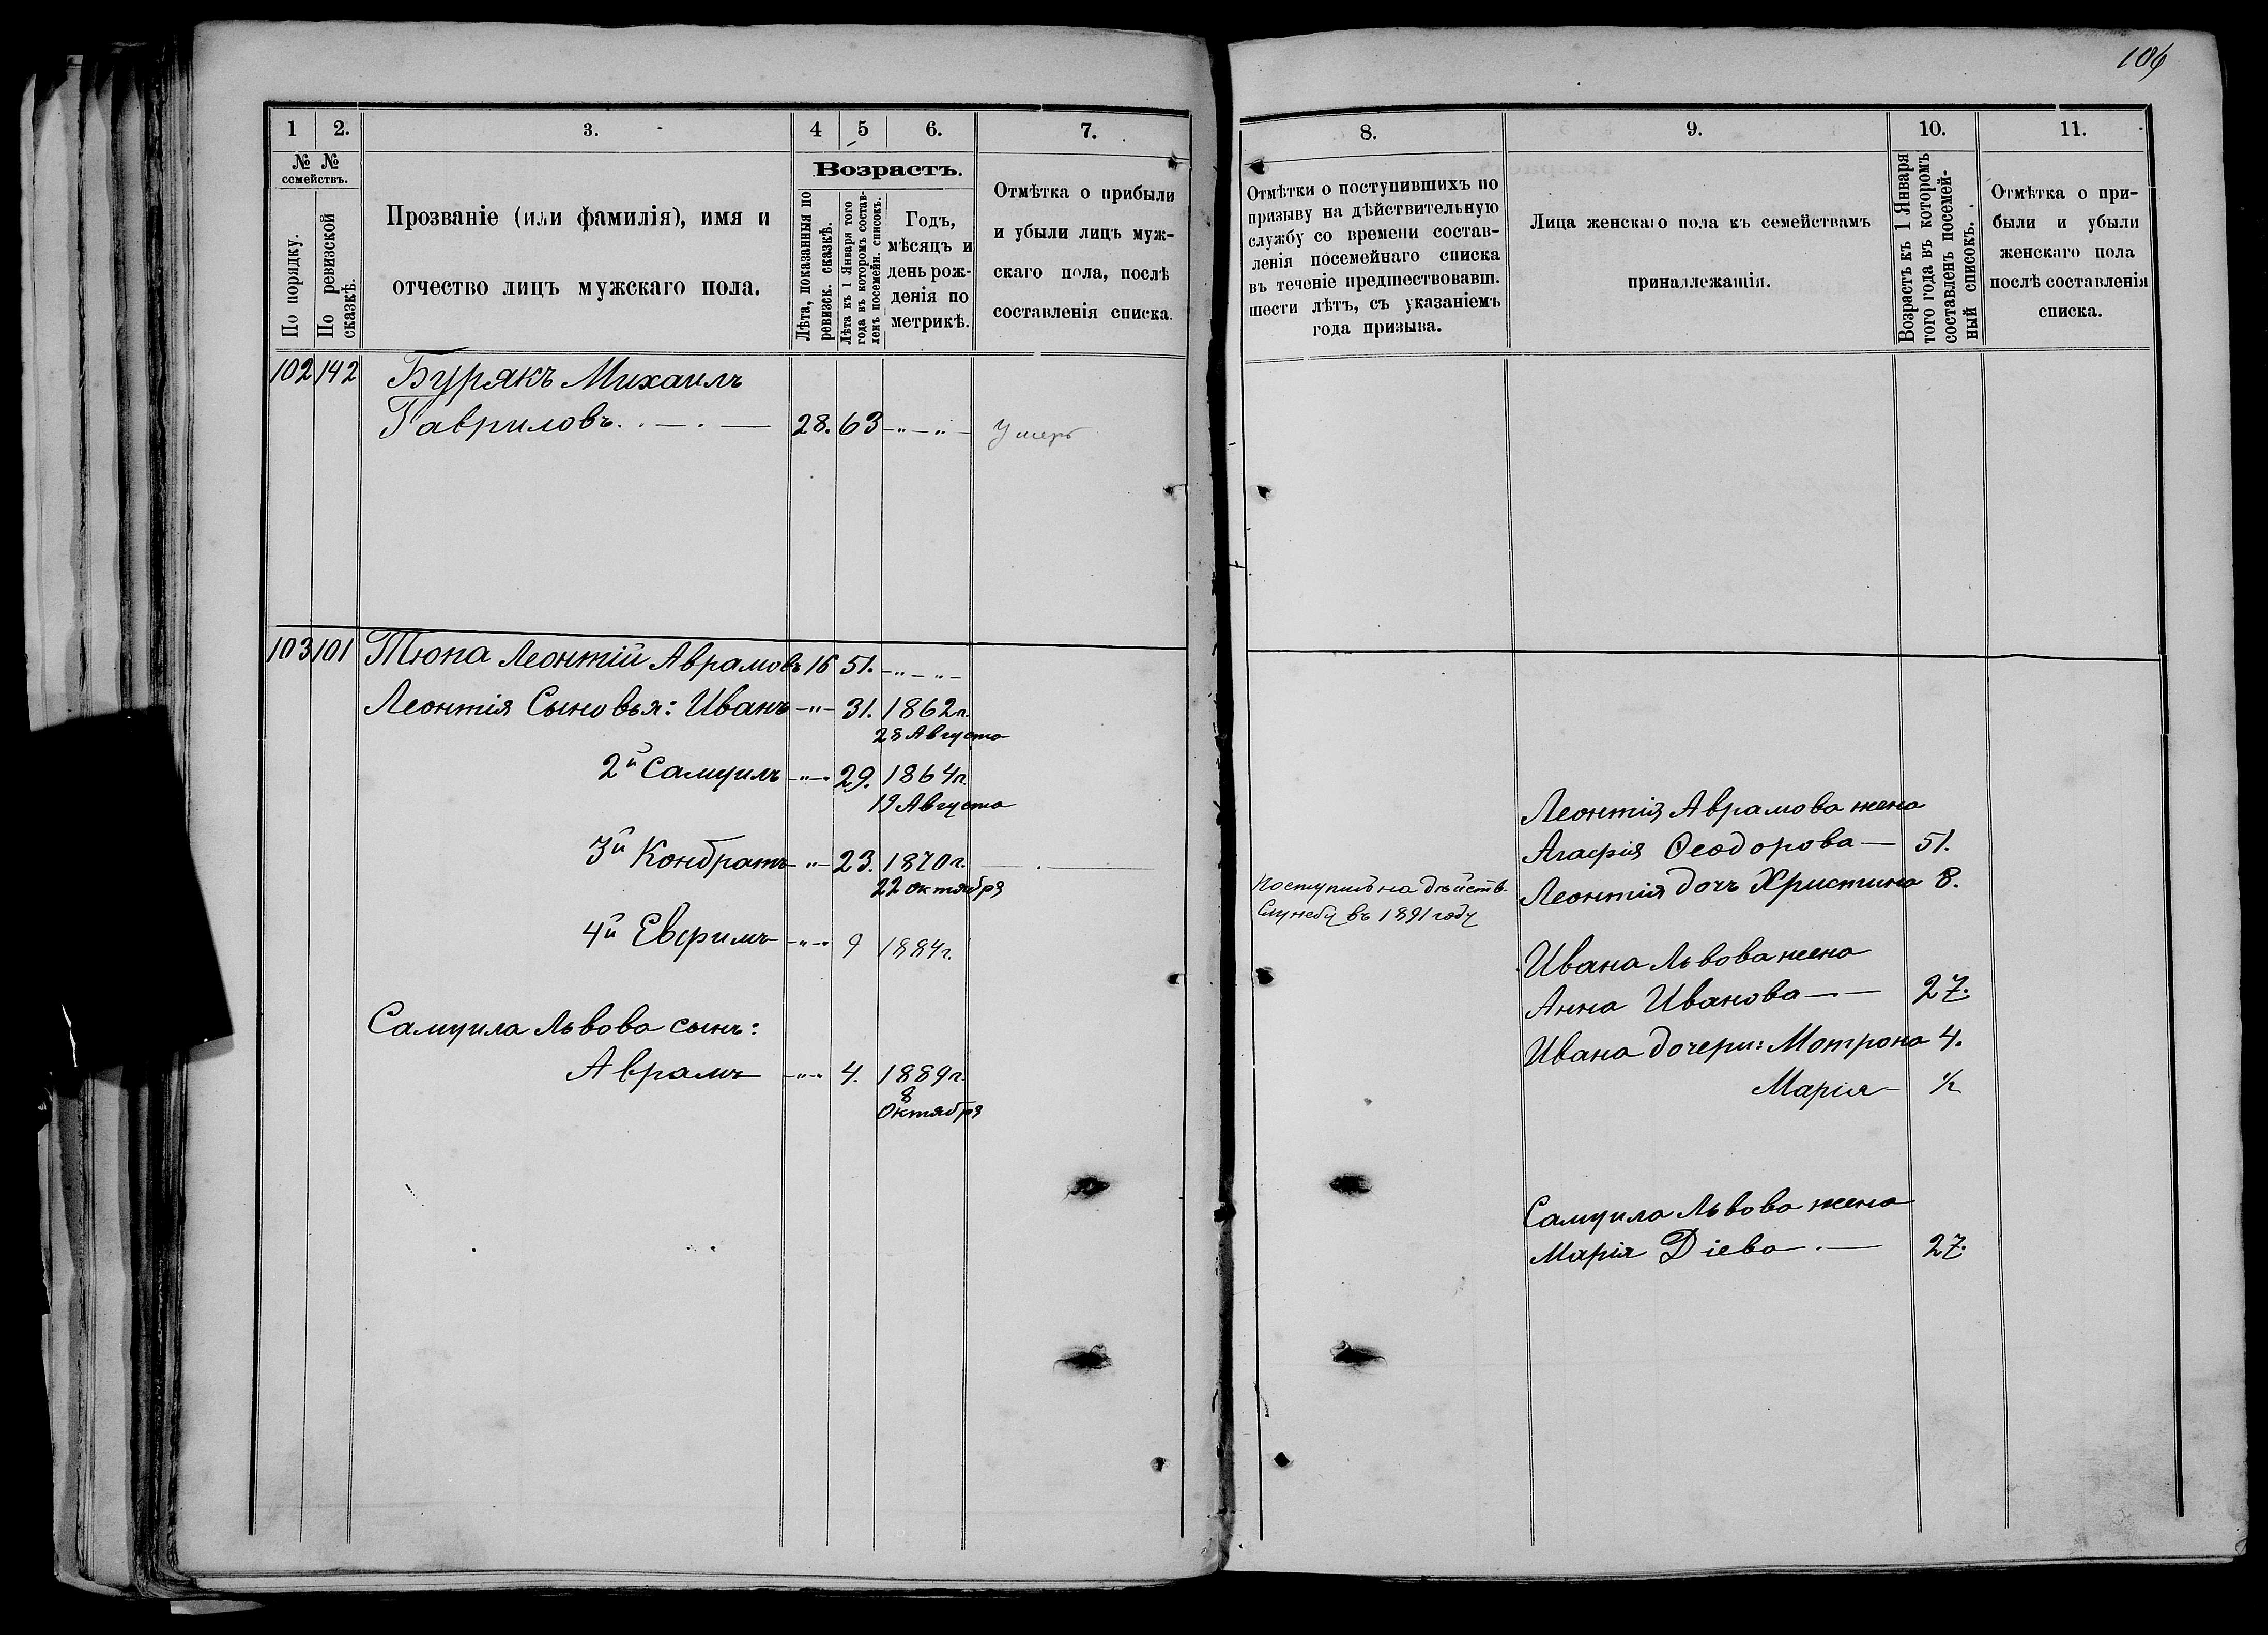 106
1 2. 3. 4 5 6. 7.
№ №
семействъ.
По порядку.
По ревизской
сказкѣ.
Прозваніе (или фамилія), имя и
отчество лицъ мужскаго пола.
Возрастъ.
Лѣта, показанныя по
ревизск. сказкѣ.
Лѣта къ 1 Января того
года въ которомъ состав-
ленъ посемейн. списокъ.
Годъ,
мѣсяцъ и
день рож-
денія по
метрикѣ.
Отмѣтка о прибыли
и убыли лицъ муж-
скаго пола, послѣ
составленія списка.
102 142 Бурякъ Михаилъ
Гавриловъ 28. 63 Умеръ
103 101 Тюпа Леонтій Аврамовъ 16 51.
Леонтія Сыновья: Иванъ 31. 1862г.
28 Августа
2й Самуилъ 29. 1864г.
19 Августа
3й Кондратъ 23. 1870г.
22 октября
4й Евфимъ 9 1884г.
Самуила Львова сынъ:
Аврамъ 4. 1889г.
8
Октября
8. 9. 10. 11.
Отмѣтки о поступившихъ по
призыву на дѣйствительную
службу со времени состав-
ленія посемейнаго списка
въ теченіе предшествовавш.
шести лѣтъ, съ указаніемъ
года призыва.
Лица женскаго пола къ семействамъ
принадлежащія.
Возрастъ къ 1 Января
того года въ которомъ
составленъ посемей-
ный списокъ.
Отмѣтка о при-
были и убыли
женскаго пола
послѣ составленія
списка.
Леонтія Аврамова жена
Агафія Ѳеодорова 51.
Поступилъ на дѣйств.
Службу въ 1891 году
Леонтія дочь Христина 8.
Ивана Львова жена
Анна Иванова 27.
Ивана дочери: Мотрона 4.
Марія ½
Самуила Львова жена
Марія Діева 27.